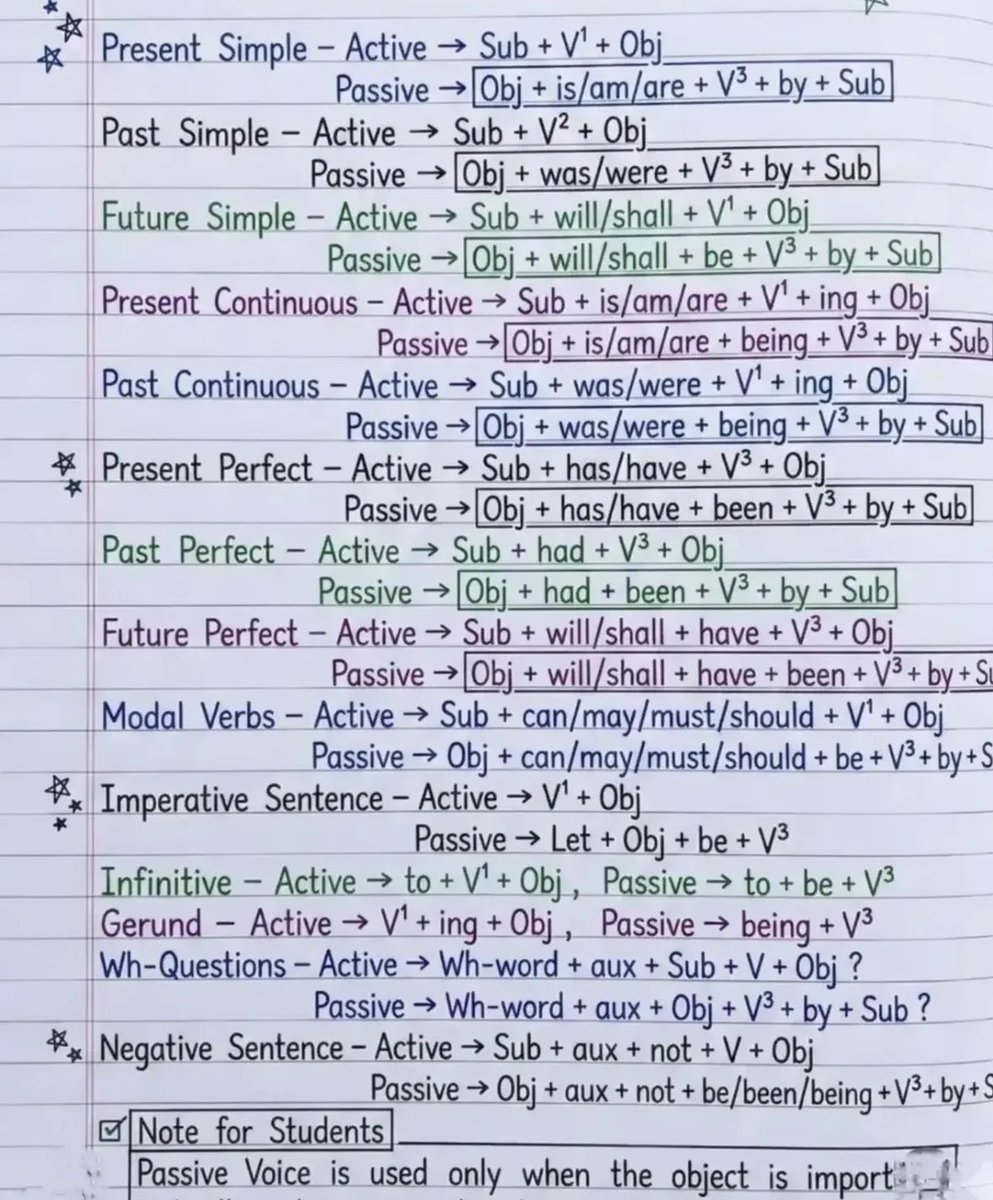 Present Simple – Active → Sub + V¹ + Obj
Passive → Obj + is/am/are + V³ + by + Sub
Past Simple – Active → Sub + V² + Obj
Passive → Obj + was/were + V³ + by + Sub
Future Simple – Active → Sub + will/shall + V¹ + Obj
Passive → Obj + will/shall + be + V³ + by + Sub
Present Continuous – Active → Sub + is/am/are + V¹ + ing + Obj
Passive → Obj + is/am/are + being + V³ + by + Sub
Past Continuous – Active → Sub + was/were + V¹ + ing + Obj
Passive → Obj + was/were + being + V³ + by + Sub
Present Perfect – Active → Sub + has/have + V³ + Obj
Passive → Obj + has/have + been + V³ + by + Sub
Past Perfect – Active → Sub + had + V³ + Obj
Passive → Obj + had + been + V³ + by + Sub
Future Perfect – Active → Sub + will/shall + have + V³ + Obj
Passive → Obj + will/shall + have + been + V³ + by +
Modal Verbs – Active → Sub + can/may/must/should + V¹ + Obj
Passive → Obj + can/may/must/should + be + V³ + by +
Imperative Sentence – Active → V¹ + Obj
Passive → Let + Obj + be + V³
Infinitive – Active → to + V¹ + Obj , Passive → to + be + V³
Gerund – Active → V¹ + ing + Obj , Passive → being + V³
Wh-Questions – Active → Wh-word + aux + Sub + V + Obj ?
Passive → Wh-word + aux + Obj + V³ + by + Sub ?
Negative Sentence – Active → Sub + aux + not + V + Obj
Passive → Obj + aux + not + be/been/being + V³ + by +
Note for Students
Passive Voice is used only when the object is